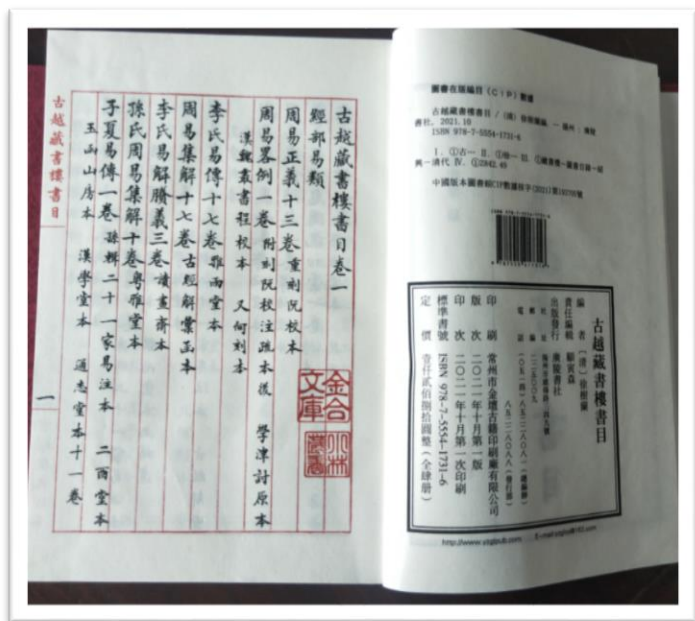 古越藏書樓書目
古越藏書樓書目卷一
經部易類
周易正義十三卷重刻阮校本
周易畧例一卷附刻阮校注疏本後 學津討原本
漢魏叢書程校本 又何刻本
李氏易傳十七卷雅雨堂本
周易集解十七卷古經解彙函本
李氏易解賸義三卷讀畫齋本
孫氏周易集解十卷粤雅堂本
子夏易傳一卷孫輯二十一家易注本 二酉堂本
玉函山房本 漢學堂本 通志堂本十一卷
一
金合文庫
圖書在版編目（CIP）數據
古越藏書樓書目 /（清）徐樹蘭編. — 揚州 : 廣陵
書社, 2021.10
ISBN 978-7-5554-1731-6
Ⅰ. ①古… Ⅱ. ①徐… Ⅲ. ①藏書樓—圖書目錄—紹
興—清代 Ⅳ. ①Z842.49
中國版本圖書館CIP數據核字(2021)第192705號
古越藏書樓書目
編 者 〔清〕徐樹蘭
責任編輯 顧寅森
出版發行 廣陵書社
郵 編 二二五〇〇九
電 話 （〇五一四）八五二二八〇八一（總編辦）
八五二二八〇八八（發行部）
印 刷 常州市金壇古籍印刷廠有限公司
版 次 二〇二一年十月第一版
印 次 二〇二一年十月第一次印刷
標準書號 ISBN 978-7-5554-1731-6
定 價 壹仟貳佰捌拾圓整（全肆册）
http://www.yzglpub.com